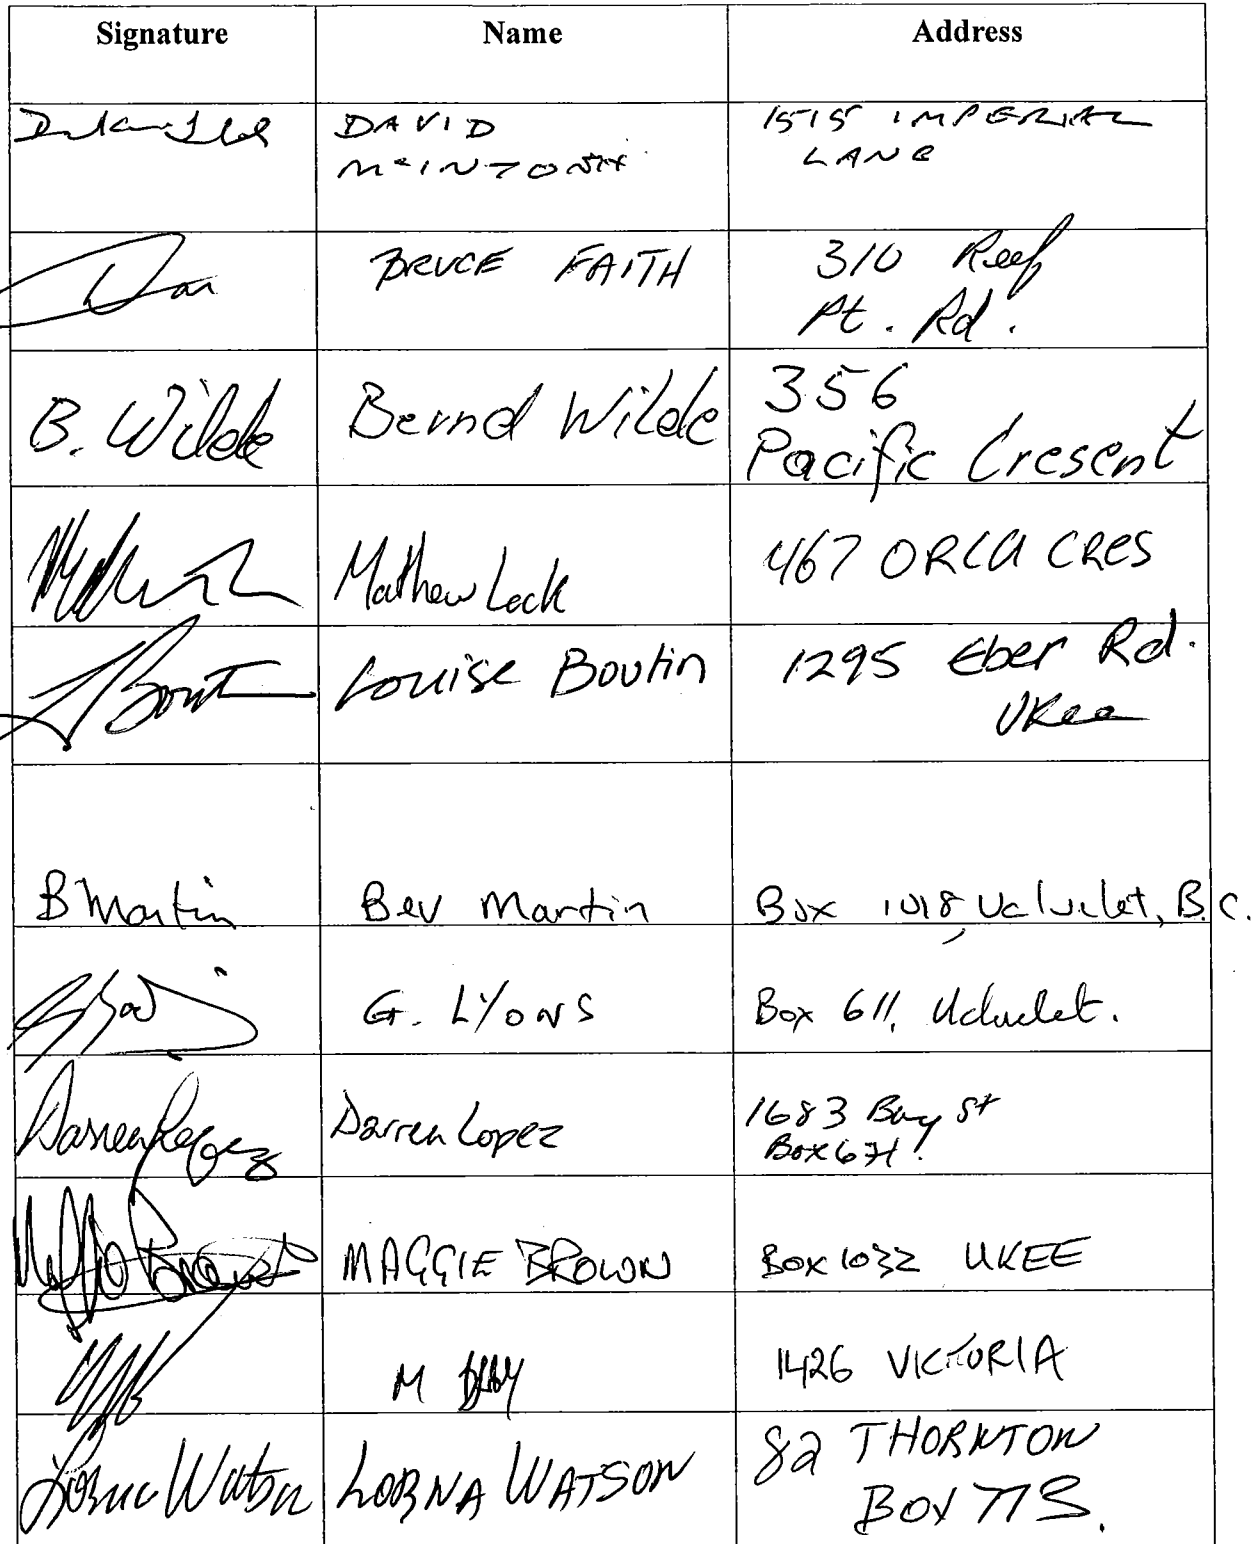 Signature Name Address
DAVID 1515 IMPERIAL
McINTOSH LANE
BRUCE FAITH 310 Reef
Pt. Rd.
B. Wilde Bernd Wilde 356
Pacific Cresent
Mathew Lock 467 ORCA CRES
Louise Boutin 1295 Eber Rd.
Ukee
B Martin Bev Martin Box 1018, Ucluelet, B.C.
G. LYONS Box 611, Ucluelet.
Darren Lopez Darren Lopez 1683 Bay St
Box
MAGGIE BROWN Box 1032 UKEE
M 1426 VICTORIA
Lorna Watson LORNA WATSON 82 THORNTON
BOX